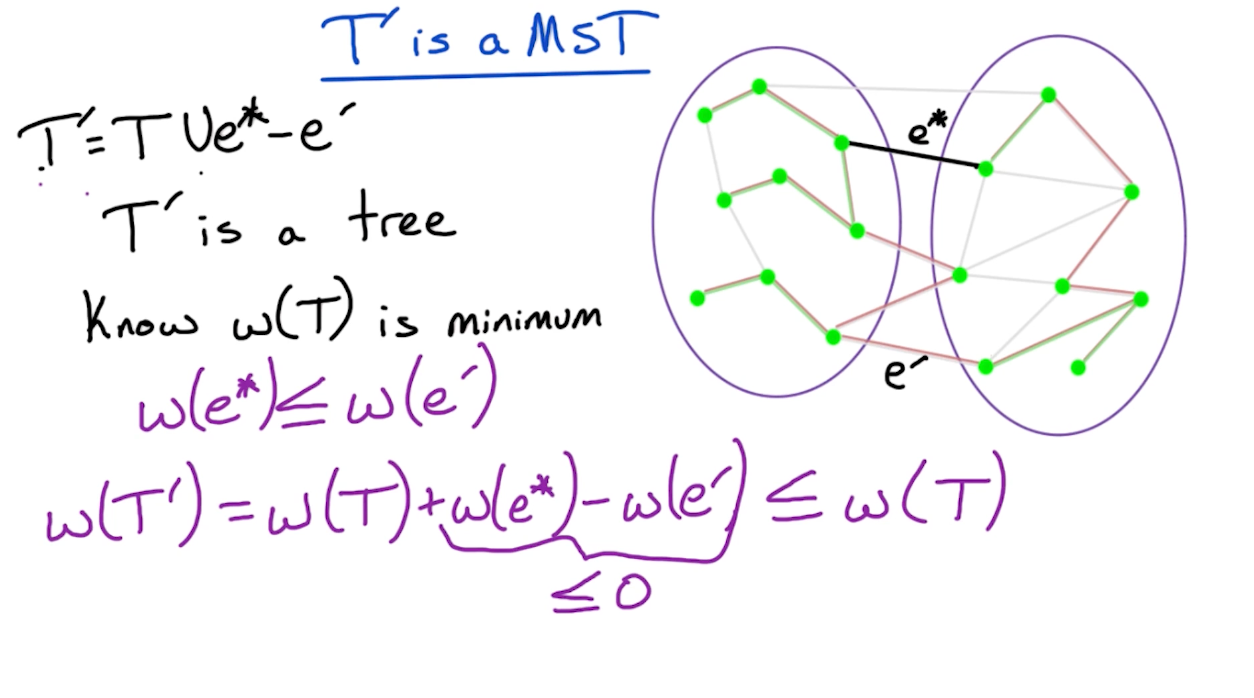 T' is a MST
T' = T ∪ e* - e'
T' is a tree
Know w(T) is minimum
w(e*) ≤ w(e')
w(T') = w(T) + w(e*) - w(e') ≤ w(T)
≤ 0
e*
e'